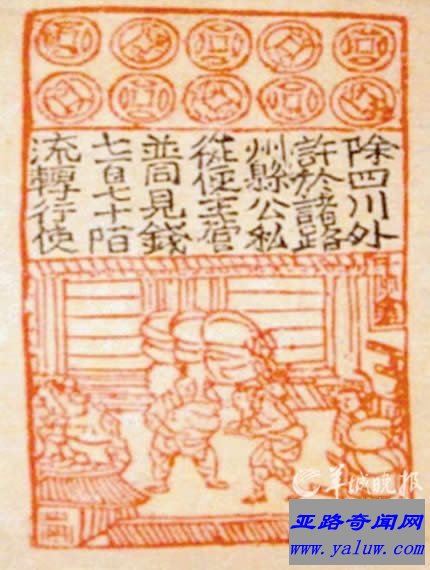 除四川外
許於諸路
州縣公私
從便主管
並同見錢
七百七十陌
流轉行使
羊城晚报
亚路奇闻网
www.yaluw.com